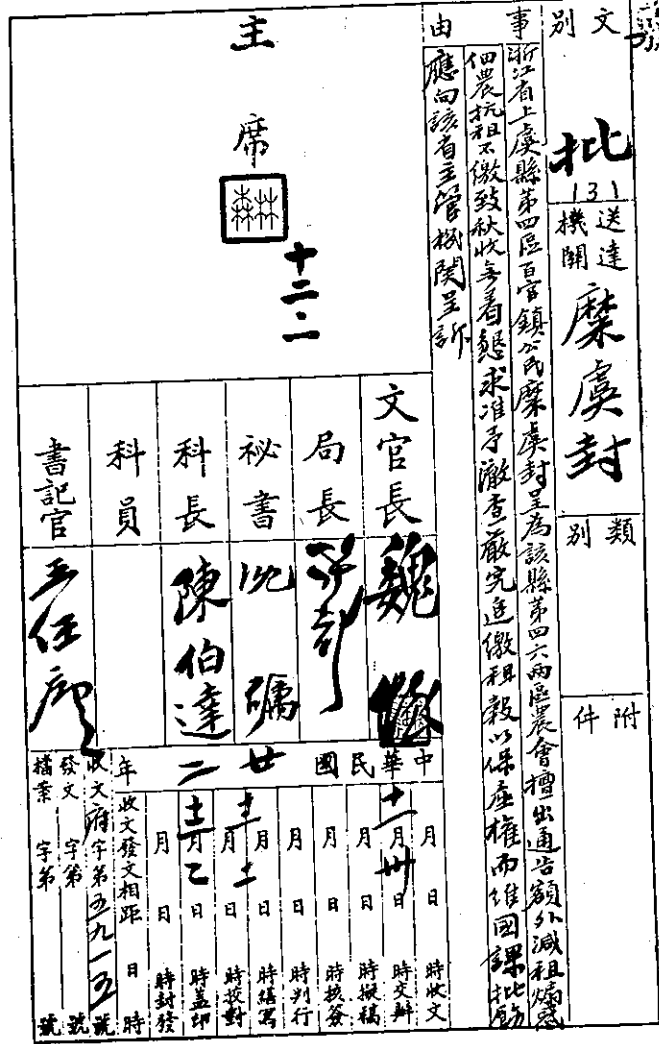 文別
批
131
送達機關
糜虞封
類別
附件
事由
浙江省上虞縣第四區百官鎮公民糜虞封呈為該縣第四六兩區農會擅出通告額外減租煽惑
佃農抗租不繳致秋收無着懇求准予澈查嚴究追繳租穀以保產權而維國課批飭
應向該省主管機関呈訴
主席
林森
十二、二
文官長
魏
局長
秘書
沈礪
科長
陳伯達
科員
書記官
中華民國廿二年
月 日 時收文
十一月卅日 時交辦
月 日 時擬稿
月 日 時核簽
月 日 時判行
月 日 時繕寫
時校對
時蓋印
月 日 時封發
收文發文相距 日 時
收文府字第五九一五號
發文 字第 號
檔案 字第 號